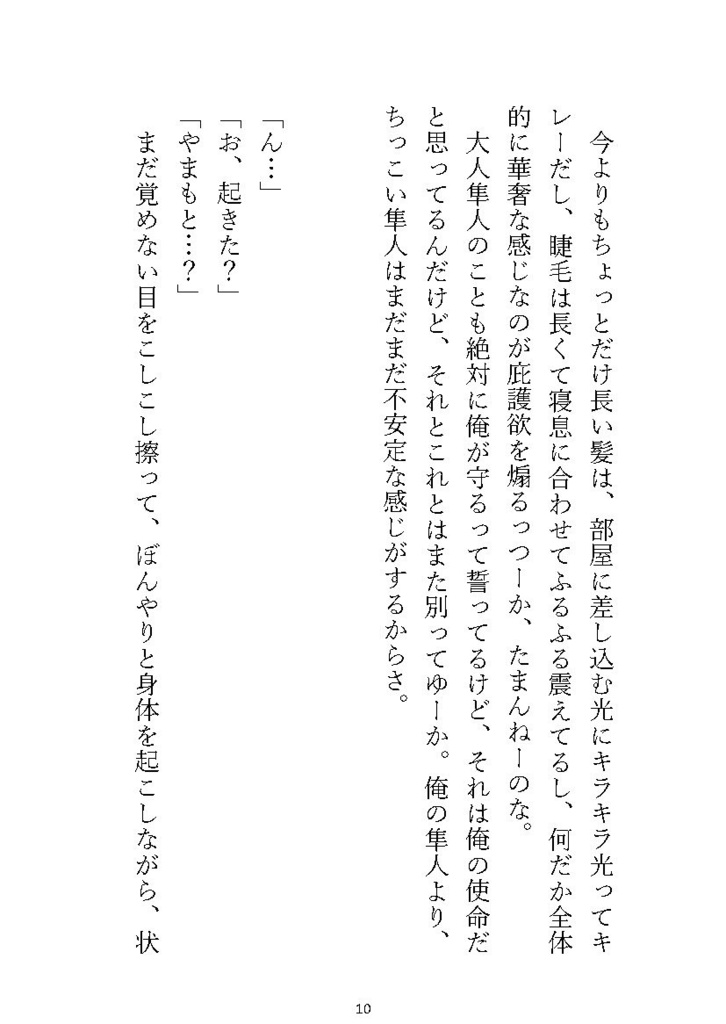 今よりもちょっとだけ長い髪は、部屋に差し込む光にキラキラ光ってキ
レーだし、睫毛は長くて寝息に合わせてふるふる震えてるし、何だか全体
的に華奢な感じなのが庇護欲を煽るっつーか、たまんねーのな。
大人隼人のことも絶対に俺が守るって誓ってるけど、それは俺の使命だ
と思ってるんだけど、それとこれとはまた別ってゆーか。俺の隼人より、
ちっこい隼人はまだまだ不安定な感じがするからさ。
「ん…」
「お、起きた？」
「やまもと…？」
まだ覚めない目をこしこし擦って、ぼんやりと身体を起こしながら、状
10